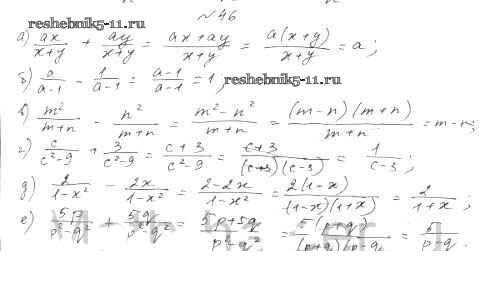 №46
reshebnik5-11.ru
а) ax/(x+y) + ay/(x+y) = (ax+ay)/(x+y) = a(x+y)/(x+y) = a;
б) a/(a-1) - 1/(a-1) = (a-1)/(a-1) = 1, reshebnik5-11.ru
в) m²/(m+n) - n²/(m+n) = (m²-n²)/(m+n) = (m-n)(m+n)/(m+n) = m-n;
г) c/(c²-9) + 3/(c²-9) = (c+3)/(c²-9) = (c+3)/((c+3)(c-3)) = 1/(c-3);
д) 2/(1-x²) - 2x/(1-x²) = (2-2x)/(1-x²) = 2(1-x)/((1-x)(1+x)) = 2/(1+x);
е) 5p/(p²-q²) + 5q/(p²-q²) = (5p+5q)/(p²-q²) = 5(p+q)/((p+q)(p-q)) = 5/(p-q).